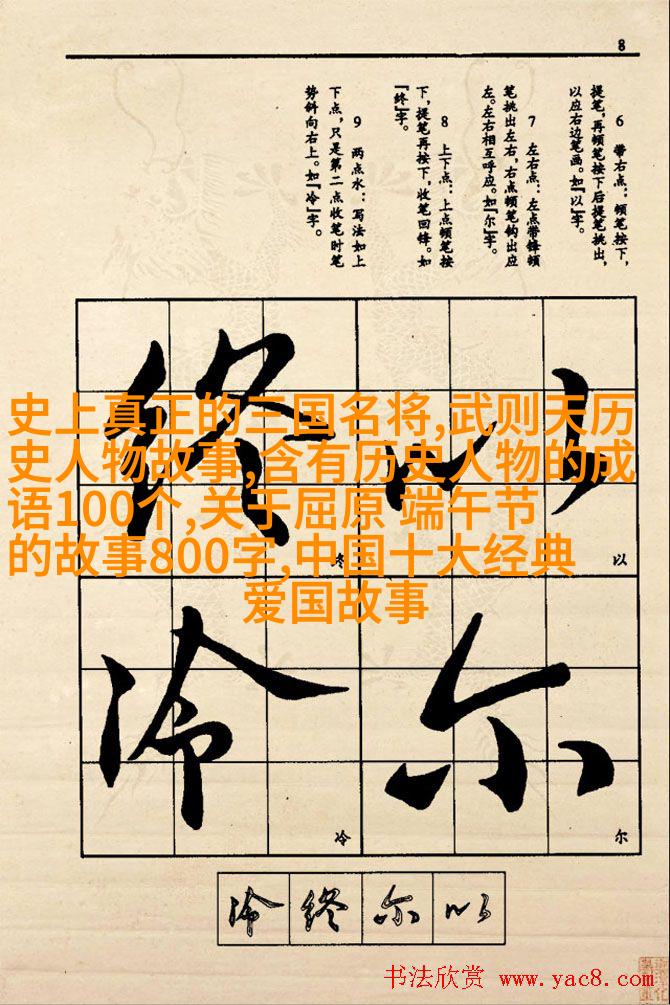 8
6 带右点：顿笔按下，
提笔，再顿笔按下后提笔挑出，
以应右边笔画。如『以』字。
7 左右点：左点带锋顿
笔挑出左右，右点顿笔钩出应
左。左右相互呼应。如『尔』字。
8 上下点：上点顿笔按
下，提笔再按下，收笔回锋。如
『终』字。
9 两点水：写法如上
下点，只是第二点收笔时笔
势斜向右上。如『冷』字。
终 以
史上真正的三国名将,武则天历
史人物故事,含有历史人物的成
语100个,关于屈原 端午节
的故事800字,中国十大经典
爱国故事
以
冷 尔
冷 尔
冷 终 尔 以
书法欣赏 www.yac8.com